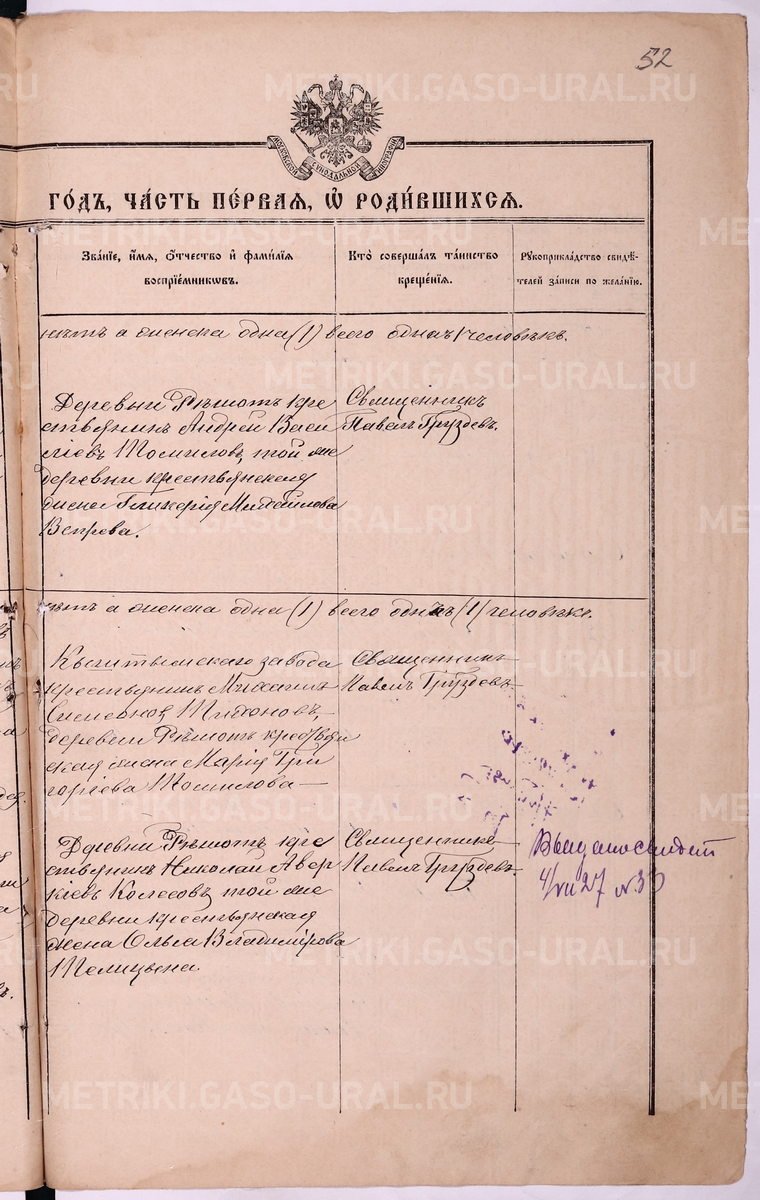 52
МОСКОВСКОЙ СѴНОДАЛЬНОЙ ТИПОГРАФІИ
го́дъ, ча́сть пе́рвая, ѽ роди́вшихся.
Зва́нїе, и҆́мя, ѻ҆́тчество и҆ фами́лїя
воспрїе́мникѡвъ.
Кто̀ соверша́лъ та́инство
креще́нїя.
Рꙋкоприкла́дство свидѣ́-
телей за́писи по жела́нїю.
нѣтъ а женска одна (1) всего однъ 1 человѣкъ.
Деревни Рѣшотъ кре
стьянинъ Андрей Васи
лiевъ Томиловъ, той же
деревни крестьянская
жена Гликерiя Михайлова
Вепрева.
Священникъ
Павелъ Груздевъ.
нѣтъ а женска одна (1) всего однъ (1) человѣкъ.
завода
крестьянинъ Михаилъ
Симеоновъ Тихоновъ,
деревни Рѣшотъ крестьян
ская жена Марiя Гри
горiева Томилова —
Священникъ
Павелъ Груздевъ
Деревни Рѣшотъ кре
стьянинъ Николай Авер
кiевъ Колесовъ, той же
деревни крестьянская
жена Ольга Владимiрова
Телицына
Священникъ
Павелъ Груздевъ
Выдано свидет
4/VII 27 №
METRIKI.GASO-URAL.RU